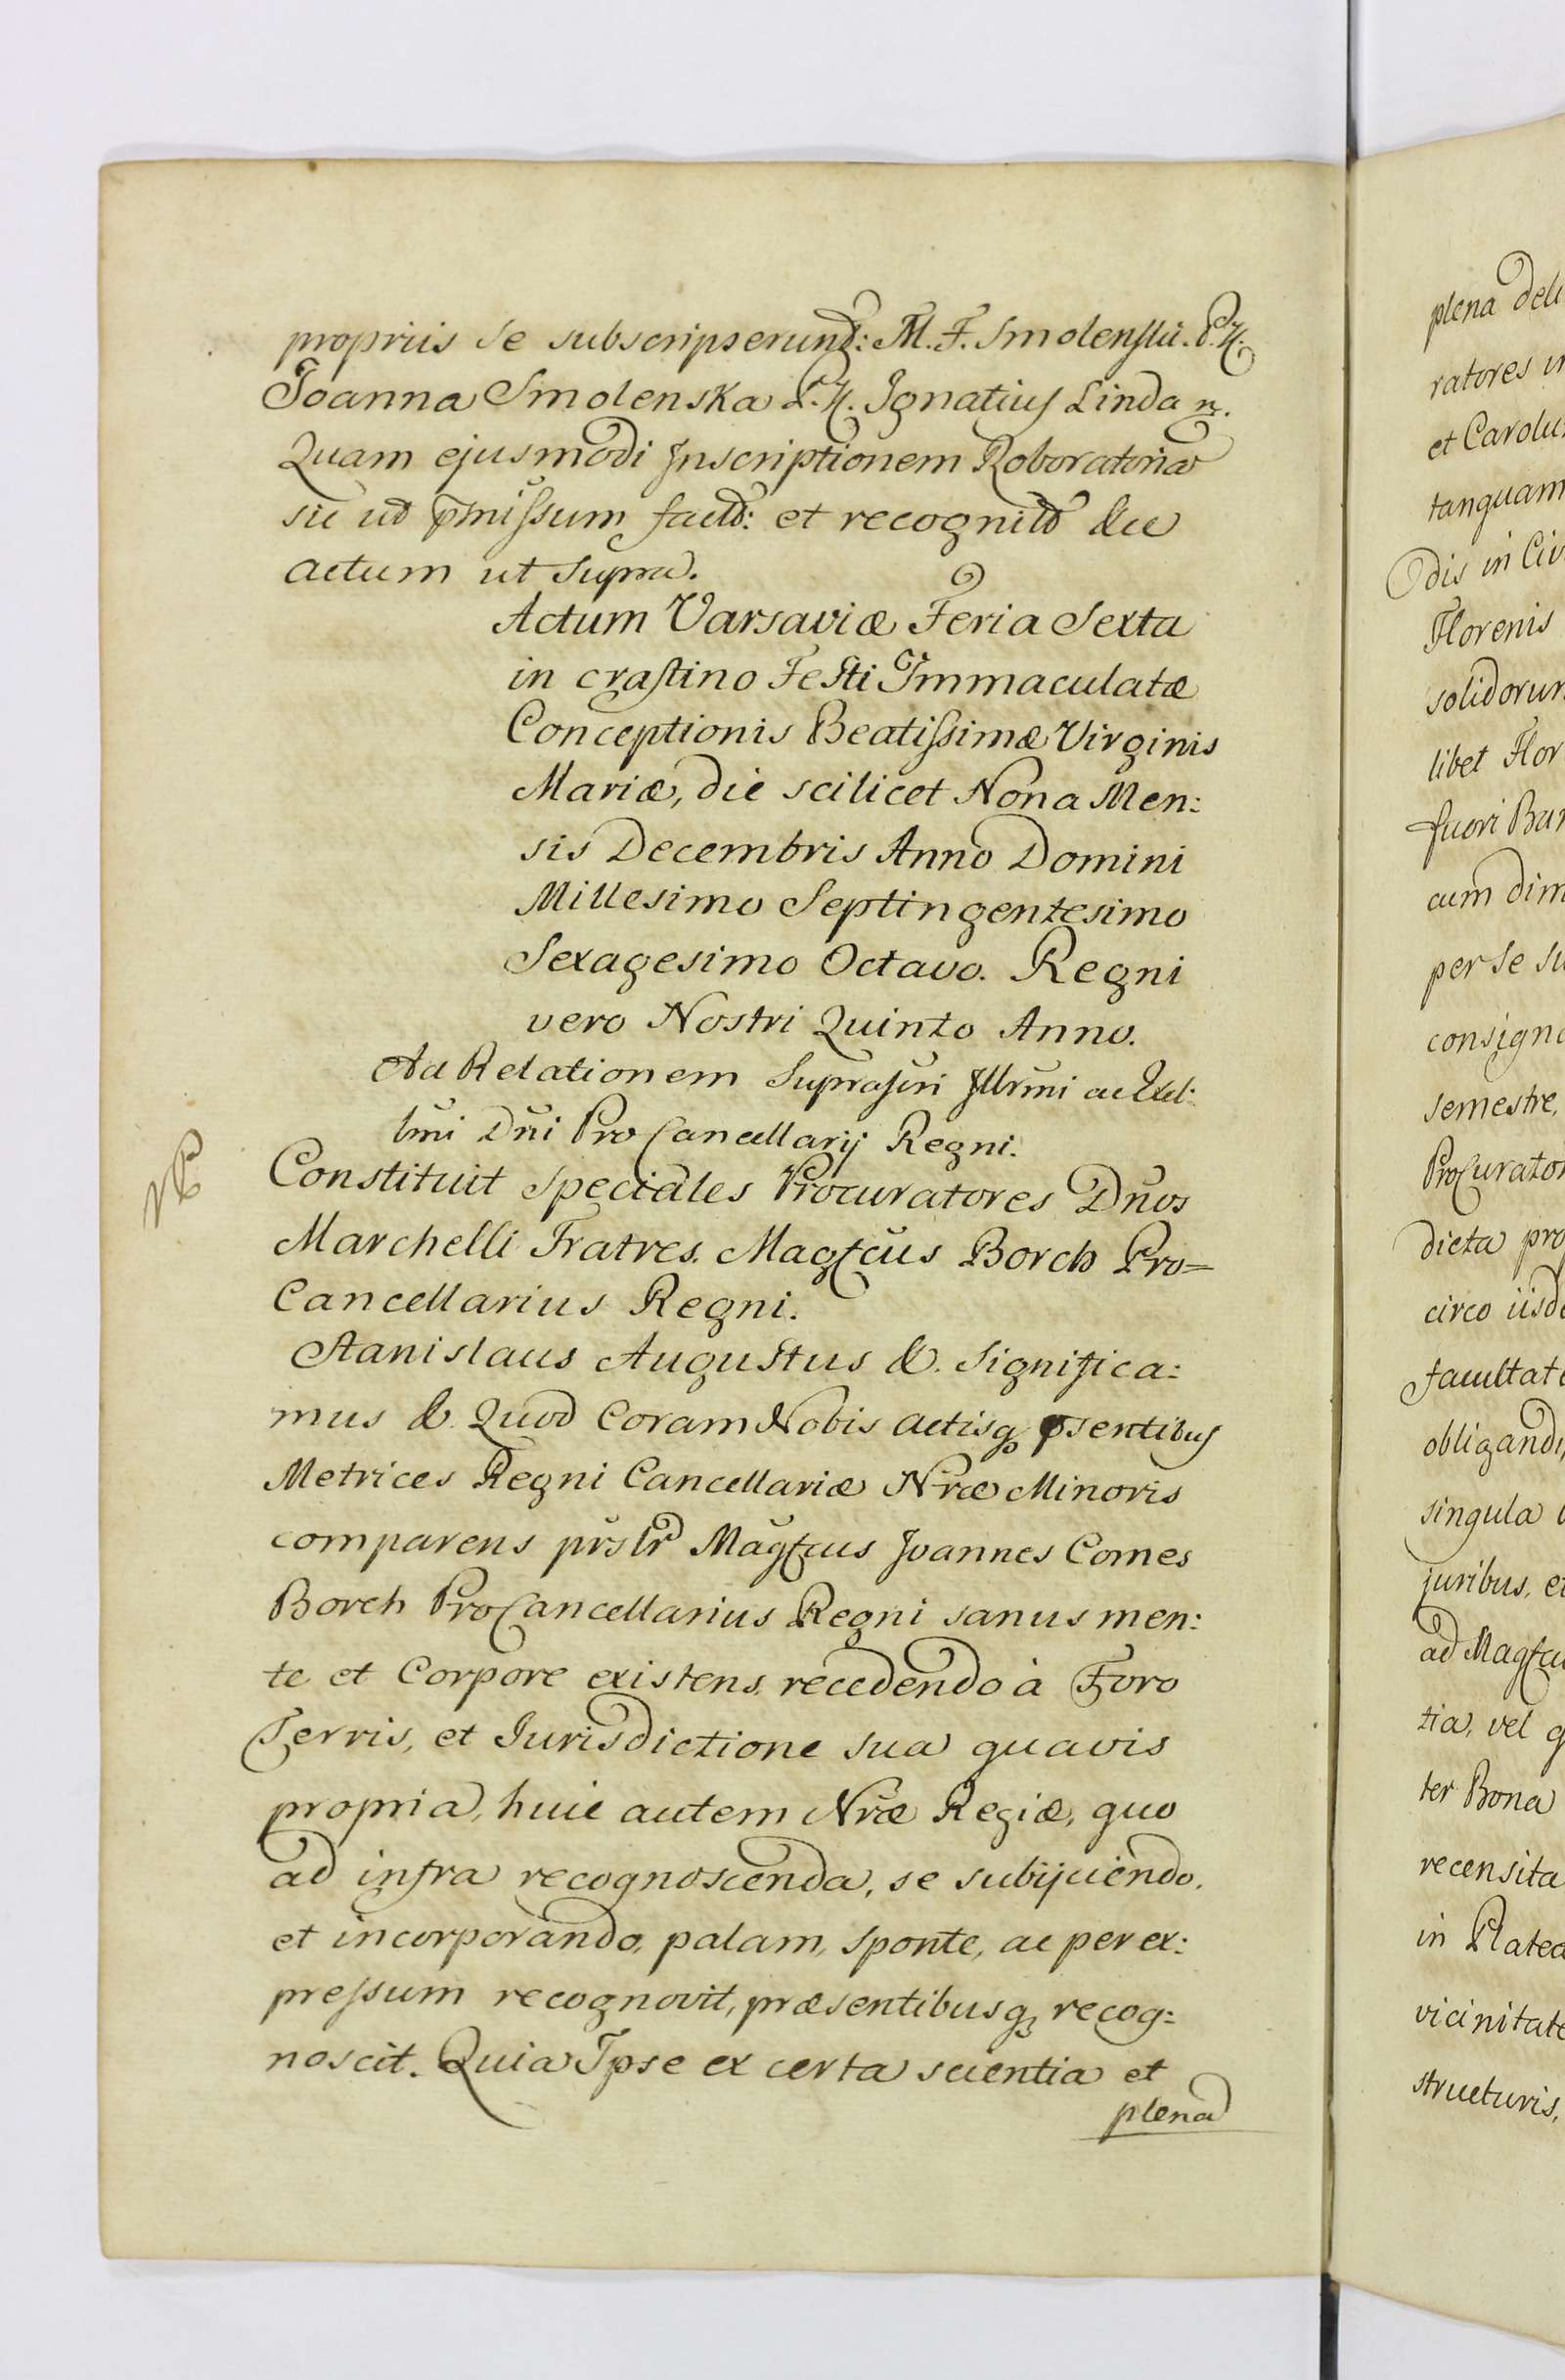 propriis se subscripserunt: M. F. Smolenski. P. K.
Joanna Smolenska P. K. Ignatius Linda
Quam ejusmodi Inscriptionem Roboratoria
sic ut p̄missum factã: et recognitã &cc
actum ut supra.
Actum Varsaviæ Feria Sexta
in crastino Festi Immaculatæ
Conceptionis Beatissimæ Virginis
Mariæ, die scilicet Nona Men:
sis Decembris Anno Domini
Millesimo Septingentesimo
Sexagesimo Octavo. Regni
vero Nostri Quinto Anno.
Ad Relationem Suprascri Illrmi ac Excel:
lmi Dñi ProCancellarij Regni.
Constituit speciales Procuratores Dños
Marchelli Fratres. Magfcus Borch Pro=
Cancellarius Regni.
Stanislaus Augustus &. Significa:
mus & Quod Coram Nobis Actisq₃ p̄sentibus
Metrices Regni Cancellariæ Nræ Minoris
comparens prslr Magfcus Joannes Comes
Borch ProCancellarius Regni sanus men:
te et Corpore existens recedendo à Foro
Terris, et Jurisdictione sua quavis
propria, huic autem Nræ Regiæ, quo
ad infra recognoscenda, se subijciendo,
et incorporando, palam, sponte, ac per ex:
pressum recognovit, præsentibusq₃ recog:
noscit. Quia Ipse ex certa scientia et
plena
plena deli
ratores i
et Carolu
tanquam
dis in Civ
Florenis
solidorum
libet Flor
fuori Bur
cum dim
per se su
consigna
semestre,
ProCurator
dicta pro
circo iisde
facultate
obligandi,
singula
juribus, et
ad Magfcu
tia, vel q
ter Bona
recensita
in Platea
vicinitate
structuris,